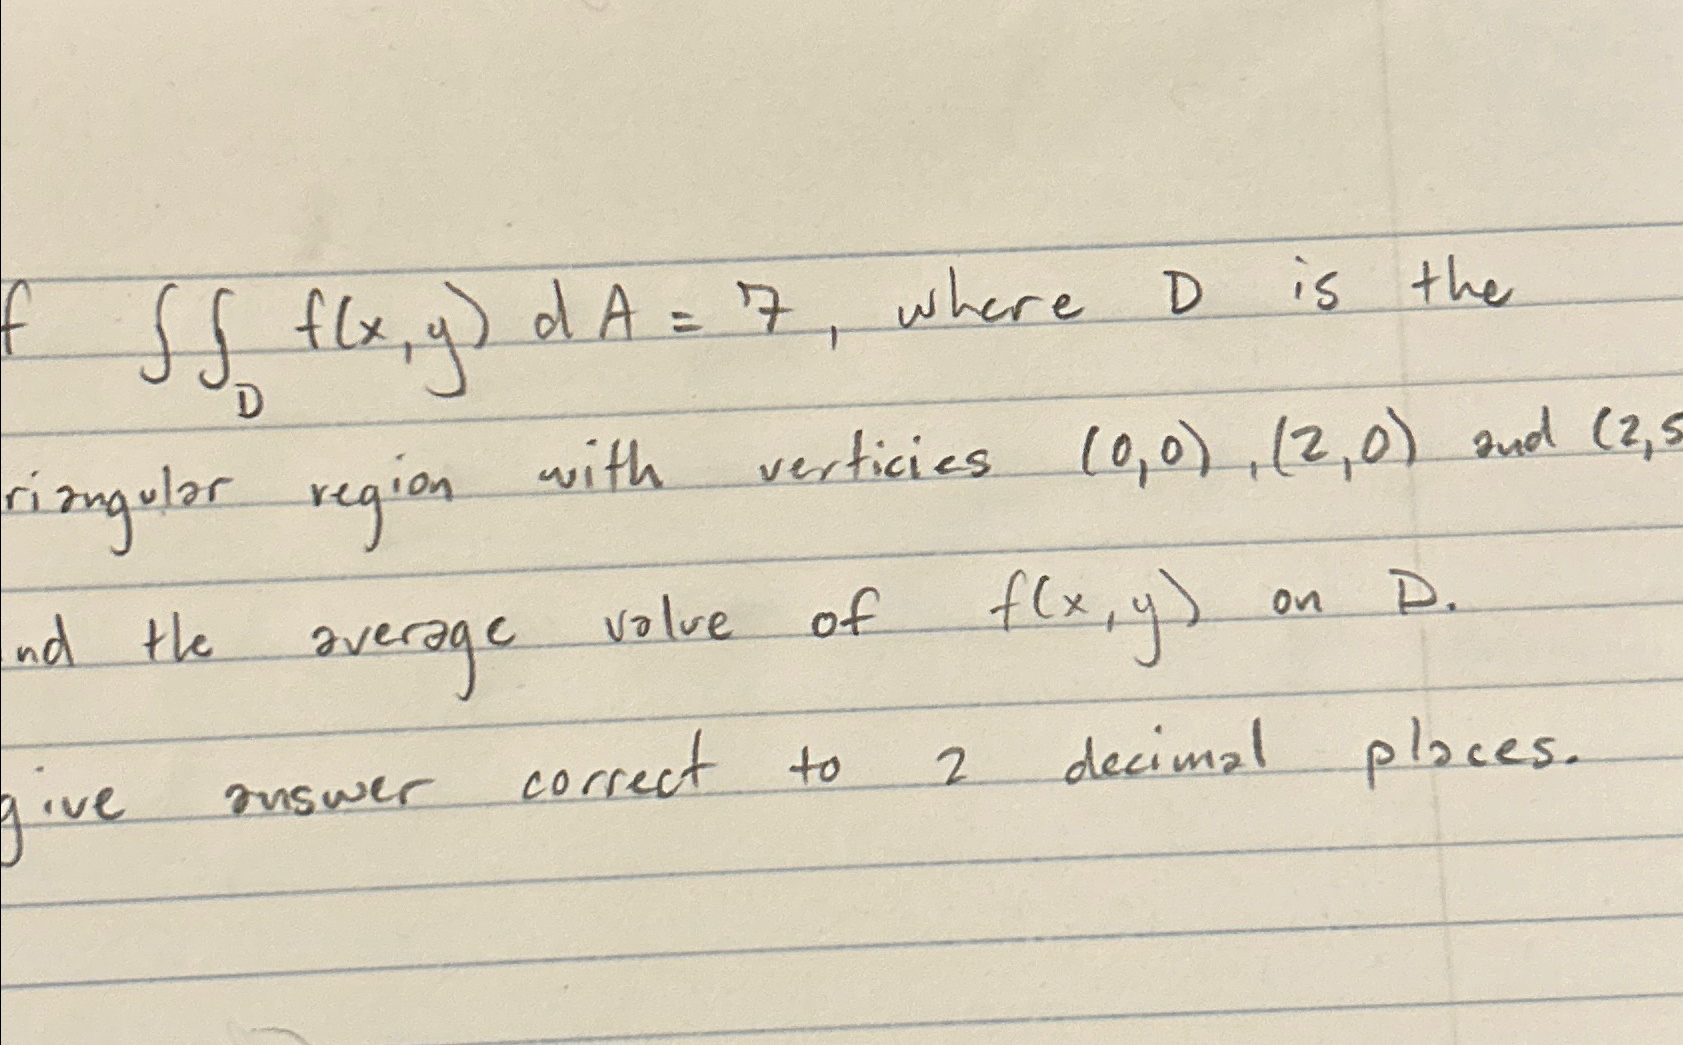 f ∫∫_D f(x,y) dA = 7, where D is the
riangular region with verticies (0,0), (2,0) and (2,5
nd the average value of f(x,y) on D.
give answer correct to 2 decimal places.